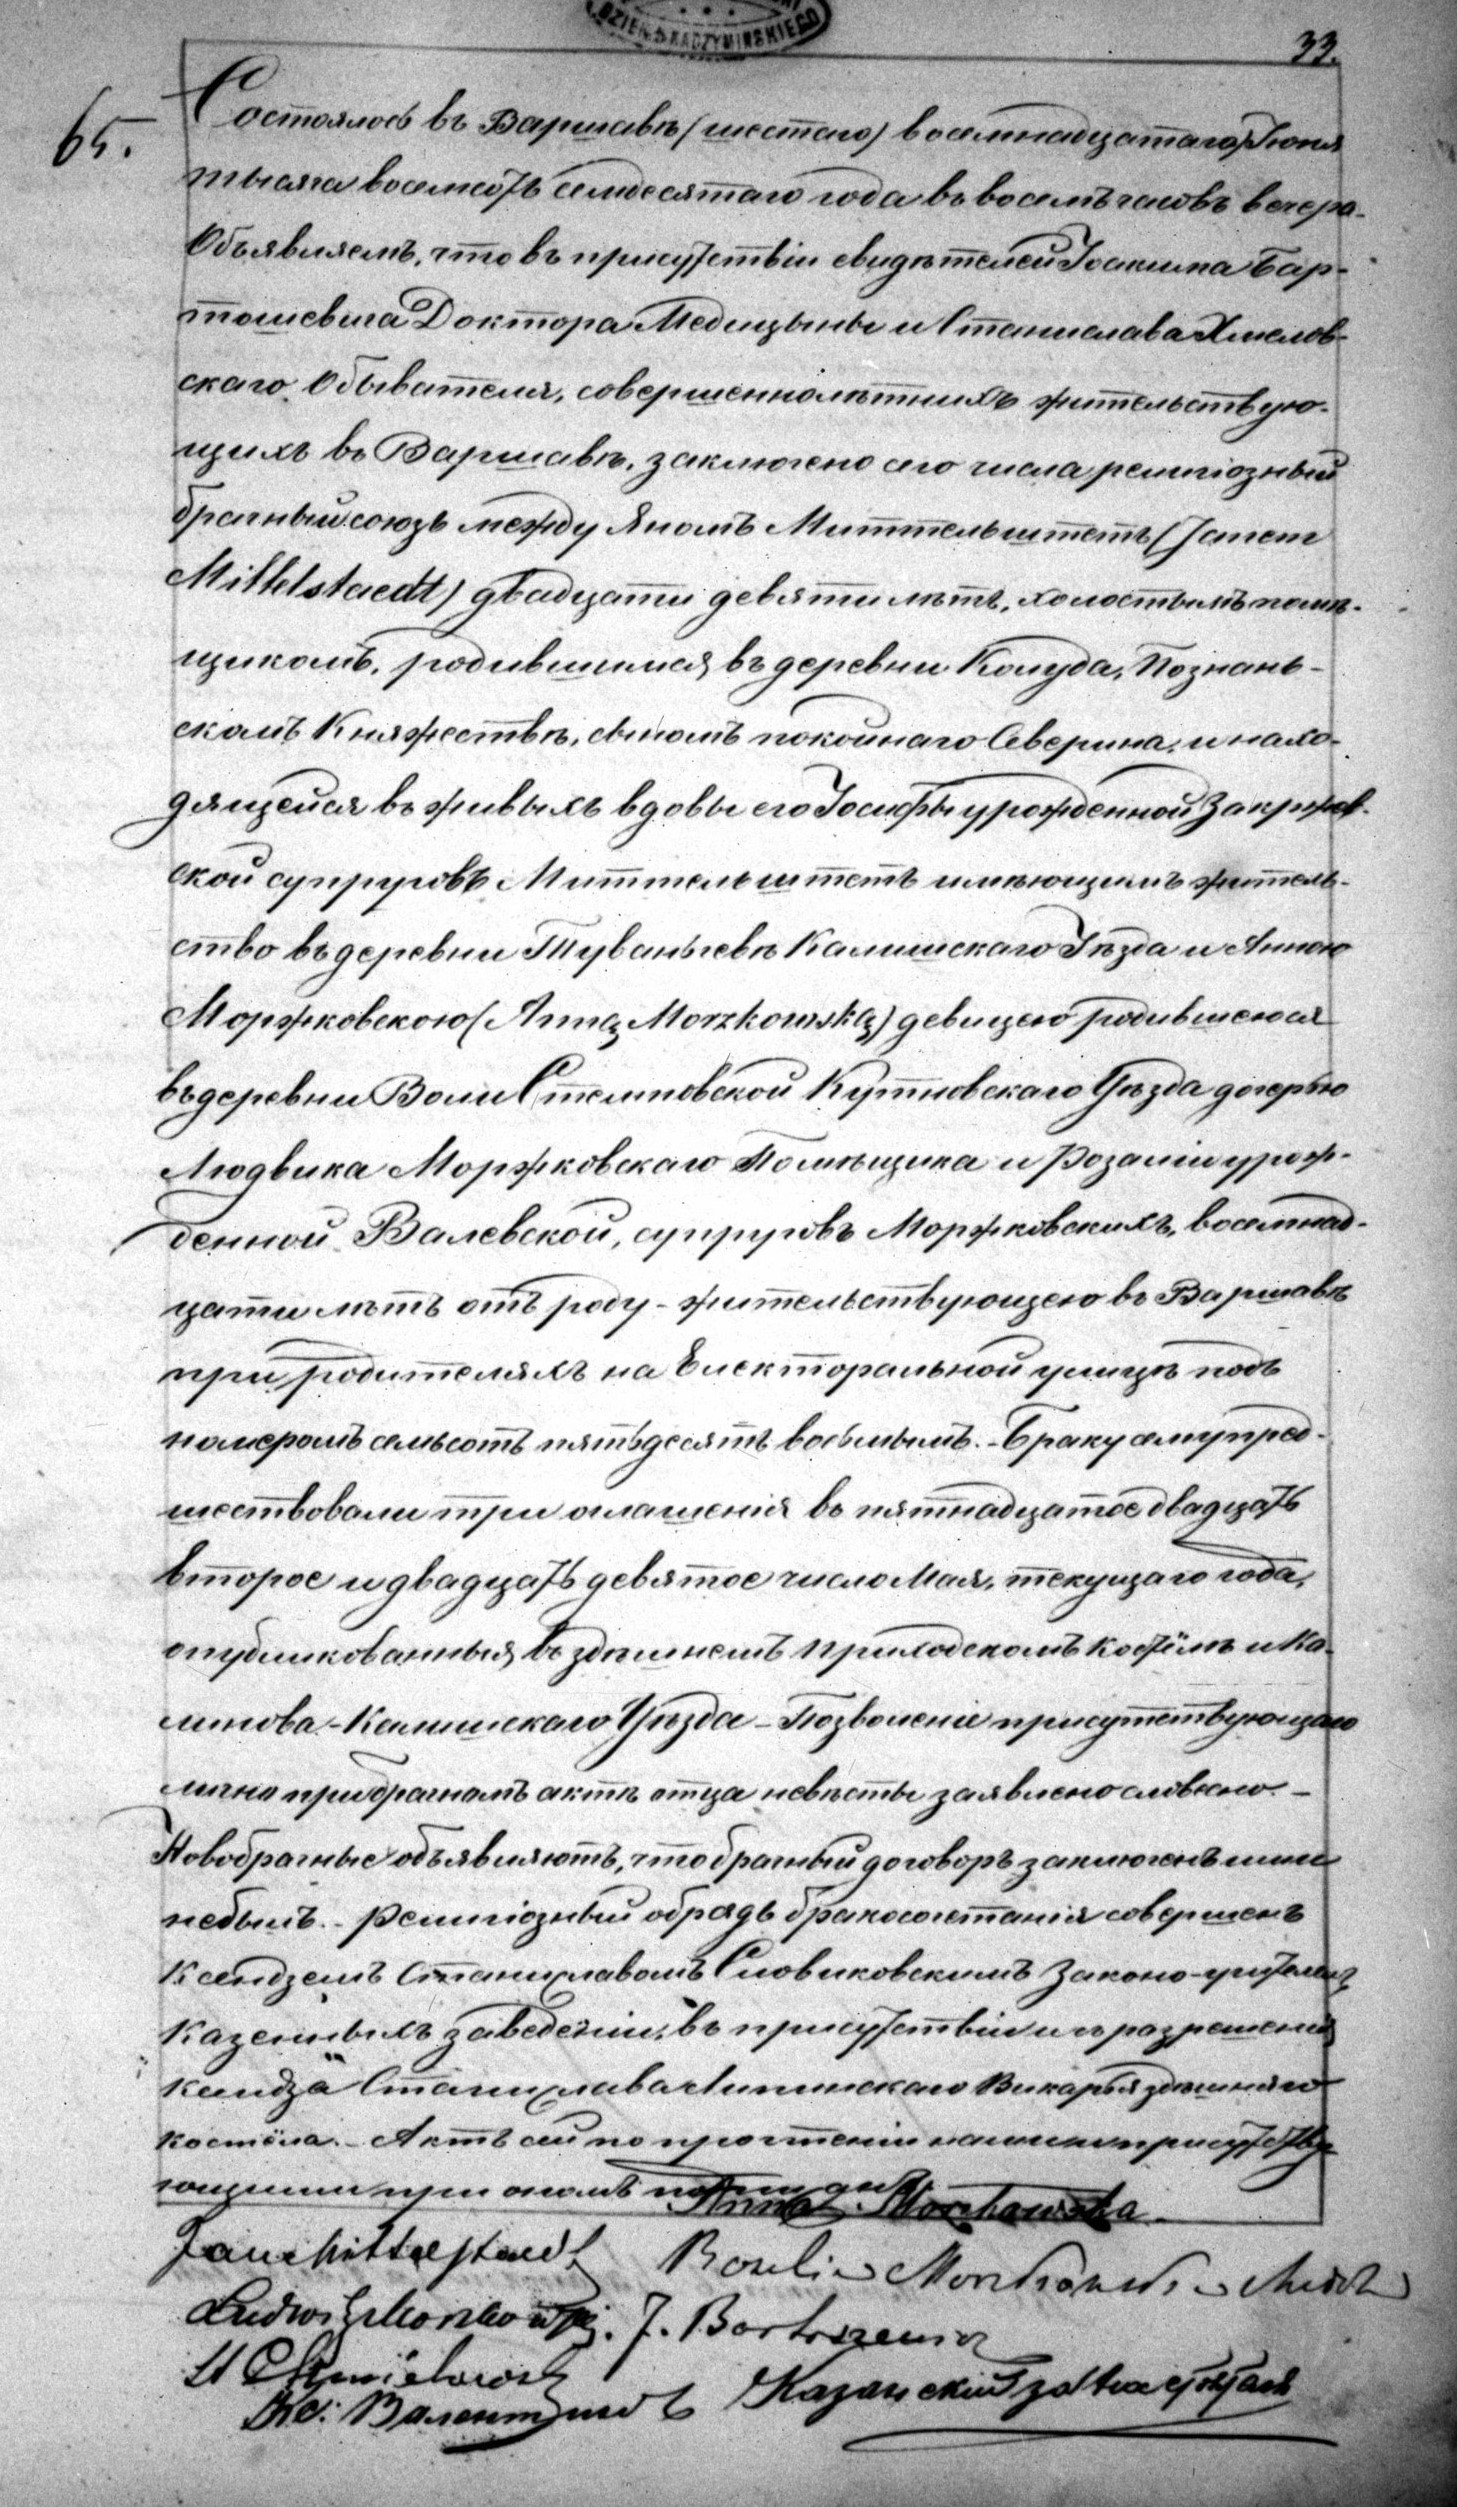 DZIEK. RADZYMIŃSKIEGO
33.
65.
Состоялось въ Варшавѣ (шестаго) восемнадцатаго Іюня
тысяча восемсотъ семдесятаго года въ восемъ часовъ вечера.
Объявляемъ, что въ присутствіи свидѣтелей Іоакима Бар-
тошевича Доктора Медицыны и Станислава Хмелов-
скаго Обывателя, совершеннолѣтнихъ жительствую-
щихъ въ Варшавѣ, заключено сего числа религіозный
брачный союзъ между Яномъ Миттельштетъ (Janem
Mittelstaedt) двадцати девяти лѣтъ, холостымъ помѣ-
щикомъ, родившимся въ деревни Колуда, Познань-
скомъ Княжествѣ, сыномъ покойнаго Северина, и нахо-
дящейся въ живыхъ вдовы его Іосифы урожденной Закржев-
ской супруговъ Миттельштетъ имѣющимъ житель-
ство въ деревни Тываньчевѣ Калишскаго Уѣзда и Анною
Моржковскою (Anną Morzkowską) девицею родившеюся
въ деревни Воли Стемповской Кутновскаго Уѣзда дочерью
Людвика Моржковскаго Помѣщика и Розаліи урож-
денной Валевской, супруговъ Моржковскихъ, восемнад-
цати лѣтъ отъ роду - жительствующею въ Варшавѣ
при родителяхъ на Електоральной улицѣ подъ
номеромъ семьсотъ пятьдесятъ восьмымъ. - Браку сему пред-
шествовали три оглашенія въ пятнадцатое двадцать
второе и двадцать девятое число Мая, текущаго года,
опубликованныя въ здѣшнемъ приходскомъ костёлѣ и Ка-
линова - Калишскаго Уѣзда - Позволеніе присутствующаго
лично при брачномъ актѣ отца невѣсты заявлено словесно. -
Новобрачные объявляютъ, что брачный договоръ заключенъ ими
небылъ. - Религіозный обрядъ бракосочетанія совершенъ
Ксендземъ Станиславомъ Словиковскимъ Законо-учителемъ
Казенныхъ заведеніи, въ присутствіи и съ разрешенія
ксендза Станислава Липинскаго Викарія здѣшняго
костёла. - Актъ сей по прочтеніи нами и присутству-
ющими при ономъ подписанъ
Anna Morzkowska
Jan Mittelstaedt Rozalia Morzkowska
Ludwik Morzkowski. J. Bartoszewicz
St Chmielowski
Кс: Валентый